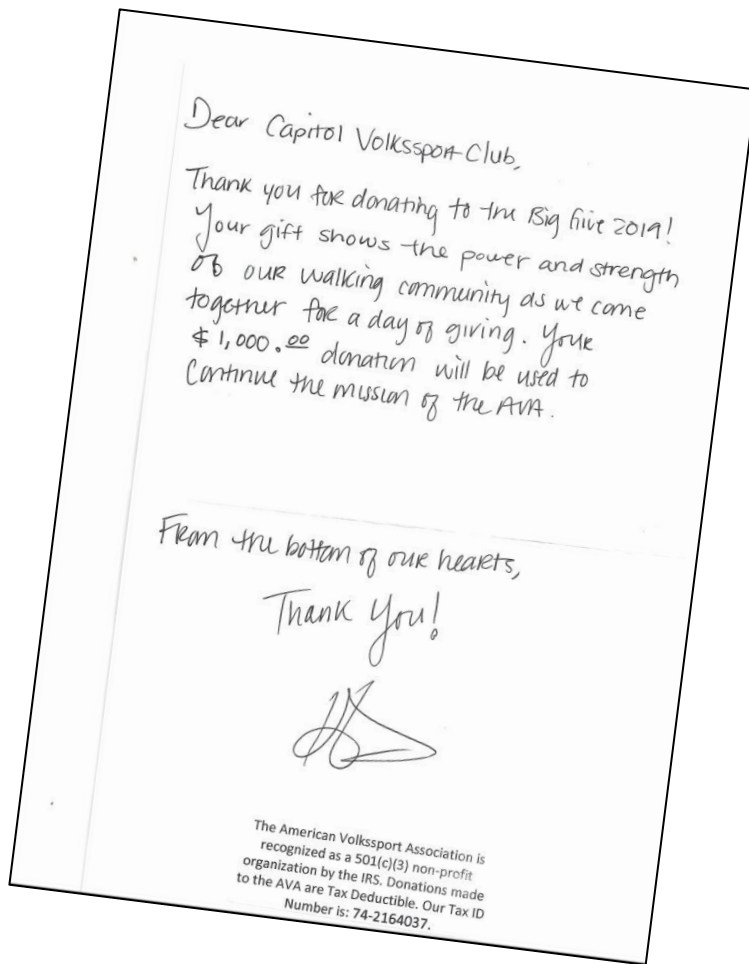 Dear Capitol Volkssport Club,
Thank you for donating to the Big Give 2019!
Your gift shows the power and strength
of our walking community as we come
together for a day of giving. Your
$1,000.00 donation will be used to
Continue the mission of the AVA.
From the bottom of our hearts,
Thank You!
The American Volkssport Association is
recognized as a 501(c)(3) non-profit
organization by the IRS. Donations made
to the AVA are Tax Deductible. Our Tax ID
Number is: 74-2164037.